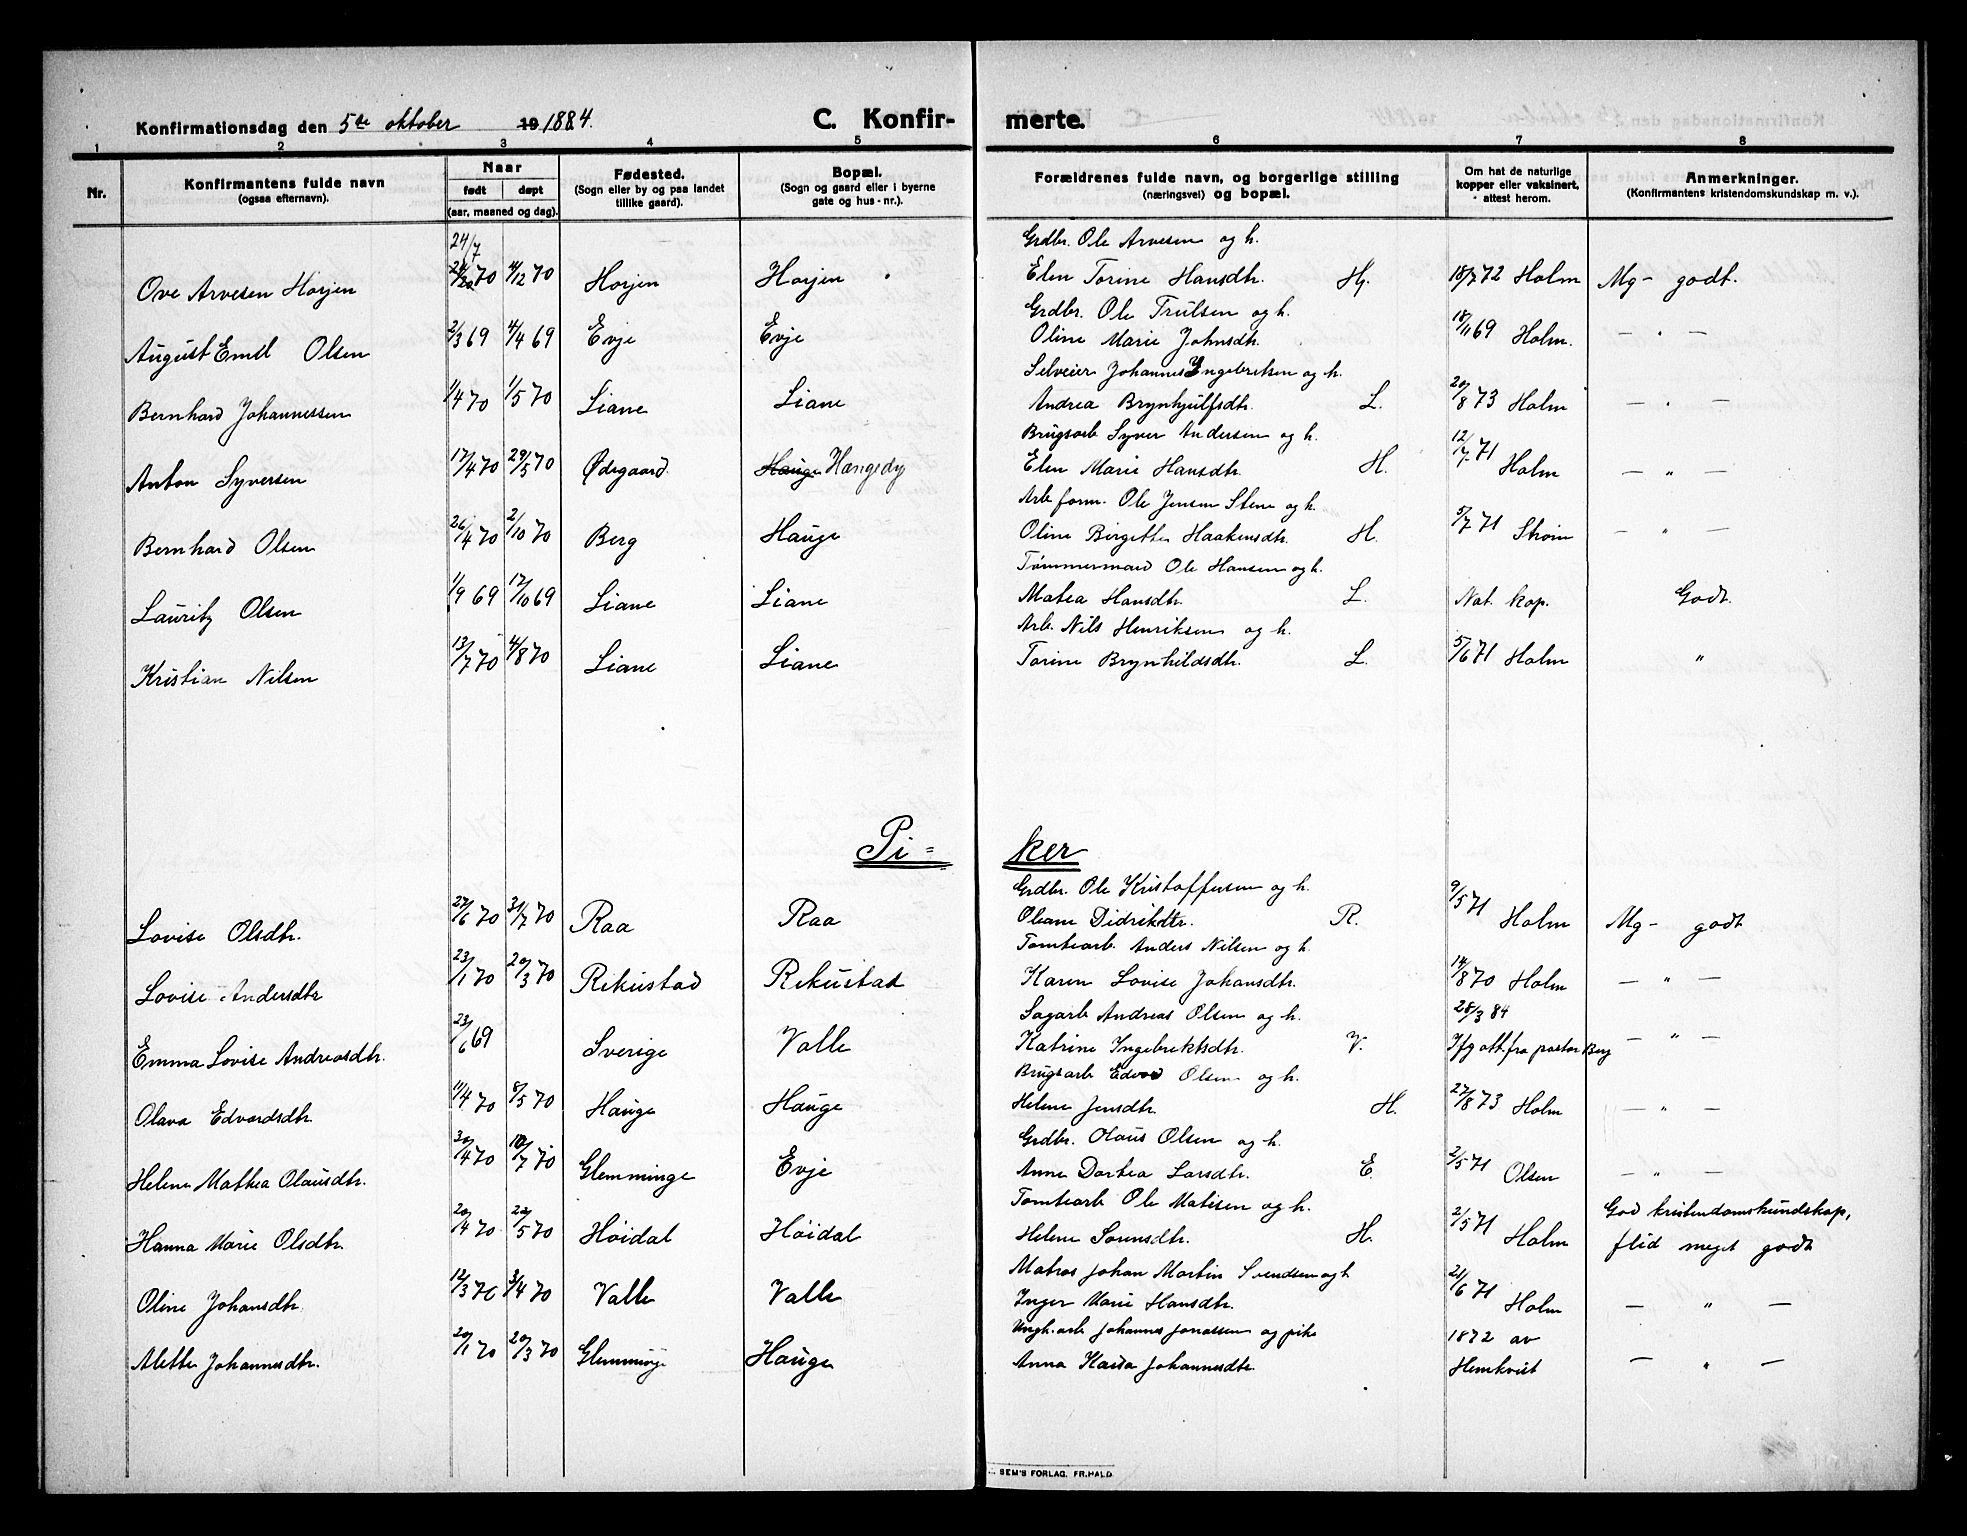 Konfirmationsdag den 5te oktober 19 1884.
C. Konfir- merte.
1 2 3 4 5 6 7 8
Nr.
Konfirmantens fulde navn
(ogsaa efternavn).
Naar
født døpt
(aar, maaned og dag).
Fødested.
(Sogn eller by og paa landet
tillike gaard).
Bopæl.
(Sogn og gaard eller i byerne
gate og hus-nr.).
Forældrenes fulde navn, og borgerlige stilling
(næringsvei) og bopæl.
Om hat de naturlige
kopper eller vaksinert,
attest herom.
Anmerkninger.
(Konfirmantens kristendomskundskap m. v.).
24/7
Grdbr. Ole Arvesen og h.
Ove Arvesen Horjen 70 4/12 70 Horjen Horjen Elen Torine Hansdtr. Hj. 18/7 72 Holm Mg- godt.
Grdbr. Ole Trulsen og h.
August Emil Olsen 2/3 69 4/4 69 Evje Evje Oline Marie Johnsdtr. 18/11 69 Holm. — " —
Selveier Johannes Ingebretsen og h.
Bernhard Johannessen 1/4 70 1/5 70 Liane Liane Andrea Brynhjulfsdtr. L. 20/8 73 Holm — " —
Brugsarb Syver Andersen og h.
Anton Syversen 17/4 70 29/5 70 Ødegaard. Hauge Hængedy Elen Marie Hansdtr. H. 12/7 71 Holm — " —
Arb. form. Ole Jensen Stene og h.
Bernhard Olsen 26/4 70 2/10 70 Berg Hauge Oline Birgitte Haakensdtr. H. 5/7 71 Strøm — " —
Tømmermand Ole Hansen og h.
Lauritz Olsen 1/9 69 17/10 69 Liane Liane Matea Hansdtr. L. Nat. kop. Godt.
Arb. Nils Henriksen og h.
Kristian Nilsen 13/7 70 4/8 70 Liane Liane Torine Brynhildsdtr. L. 5/6 71 Holm "
Pi= ker
Grdbr. Ole Kristoffersen og h.
Lovise Olsdtr. 27/6 70 31/7 70 Raa Raa Oleane Didrikdtr. R. 9/5 71 Holm Mg- godt
Tomtearb. Anders Nilsen og h.
Lovise Andersdtr 23/1 70 20/3 70 Rekustad Rekustad Karen Lovise Johansdtr. 14/8 70 Holm — " —
Sagarb Andreas Olsen og h. 28/3 84
Emma Lovise Andreasdtr. 23/6 69 Sverige Valle Katrine Ingebrektsdtr. V. Ifg att. fra pastor Berg — " —
Brugsarb Edvard Olsen og h.
Olava Edvardsdtr. 11/4 70 8/5 70 Hauge Hauge Helene Jensdtr. H. 27/8 73 Holm — " —
Grdbr. Olaus Olsen og h.
Helene Mathea Olausdtr. 30/4 70 10/7 70 Glemminge Evje Anne Dortea Larsdtr. E. 2/5 71 Olsen — " —
Tomtearb Ole Matisen og h. God kristendomskundskap,
Hanna Marie Olsdtr. 20/4 70 22/5 70 Høidal Høidal Helene Sørensdtr. H. 2/5 71 Holm flid meget godt
Matros Johan Martin Svendsen og h
Oline Johansdtr. 12/3 70 3/4 70 Valle Valle Inger Marie Hansdtr. 21/6 71 Holm — " —
Ungk. arb Johannes Jonassen og pike 1872 av
Alette Johannesdtr. 20/1 70 20/3 70 Glemminge Hauge Anna Kaisa Johannesdtr. Hemkvist — " —
SEM'S FORLAG. FR.HALD.